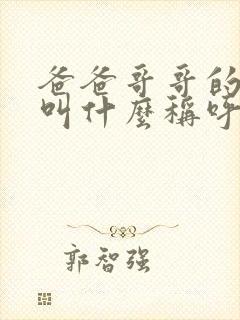 爸爸哥哥的
叫什麼稱呼
郭智强